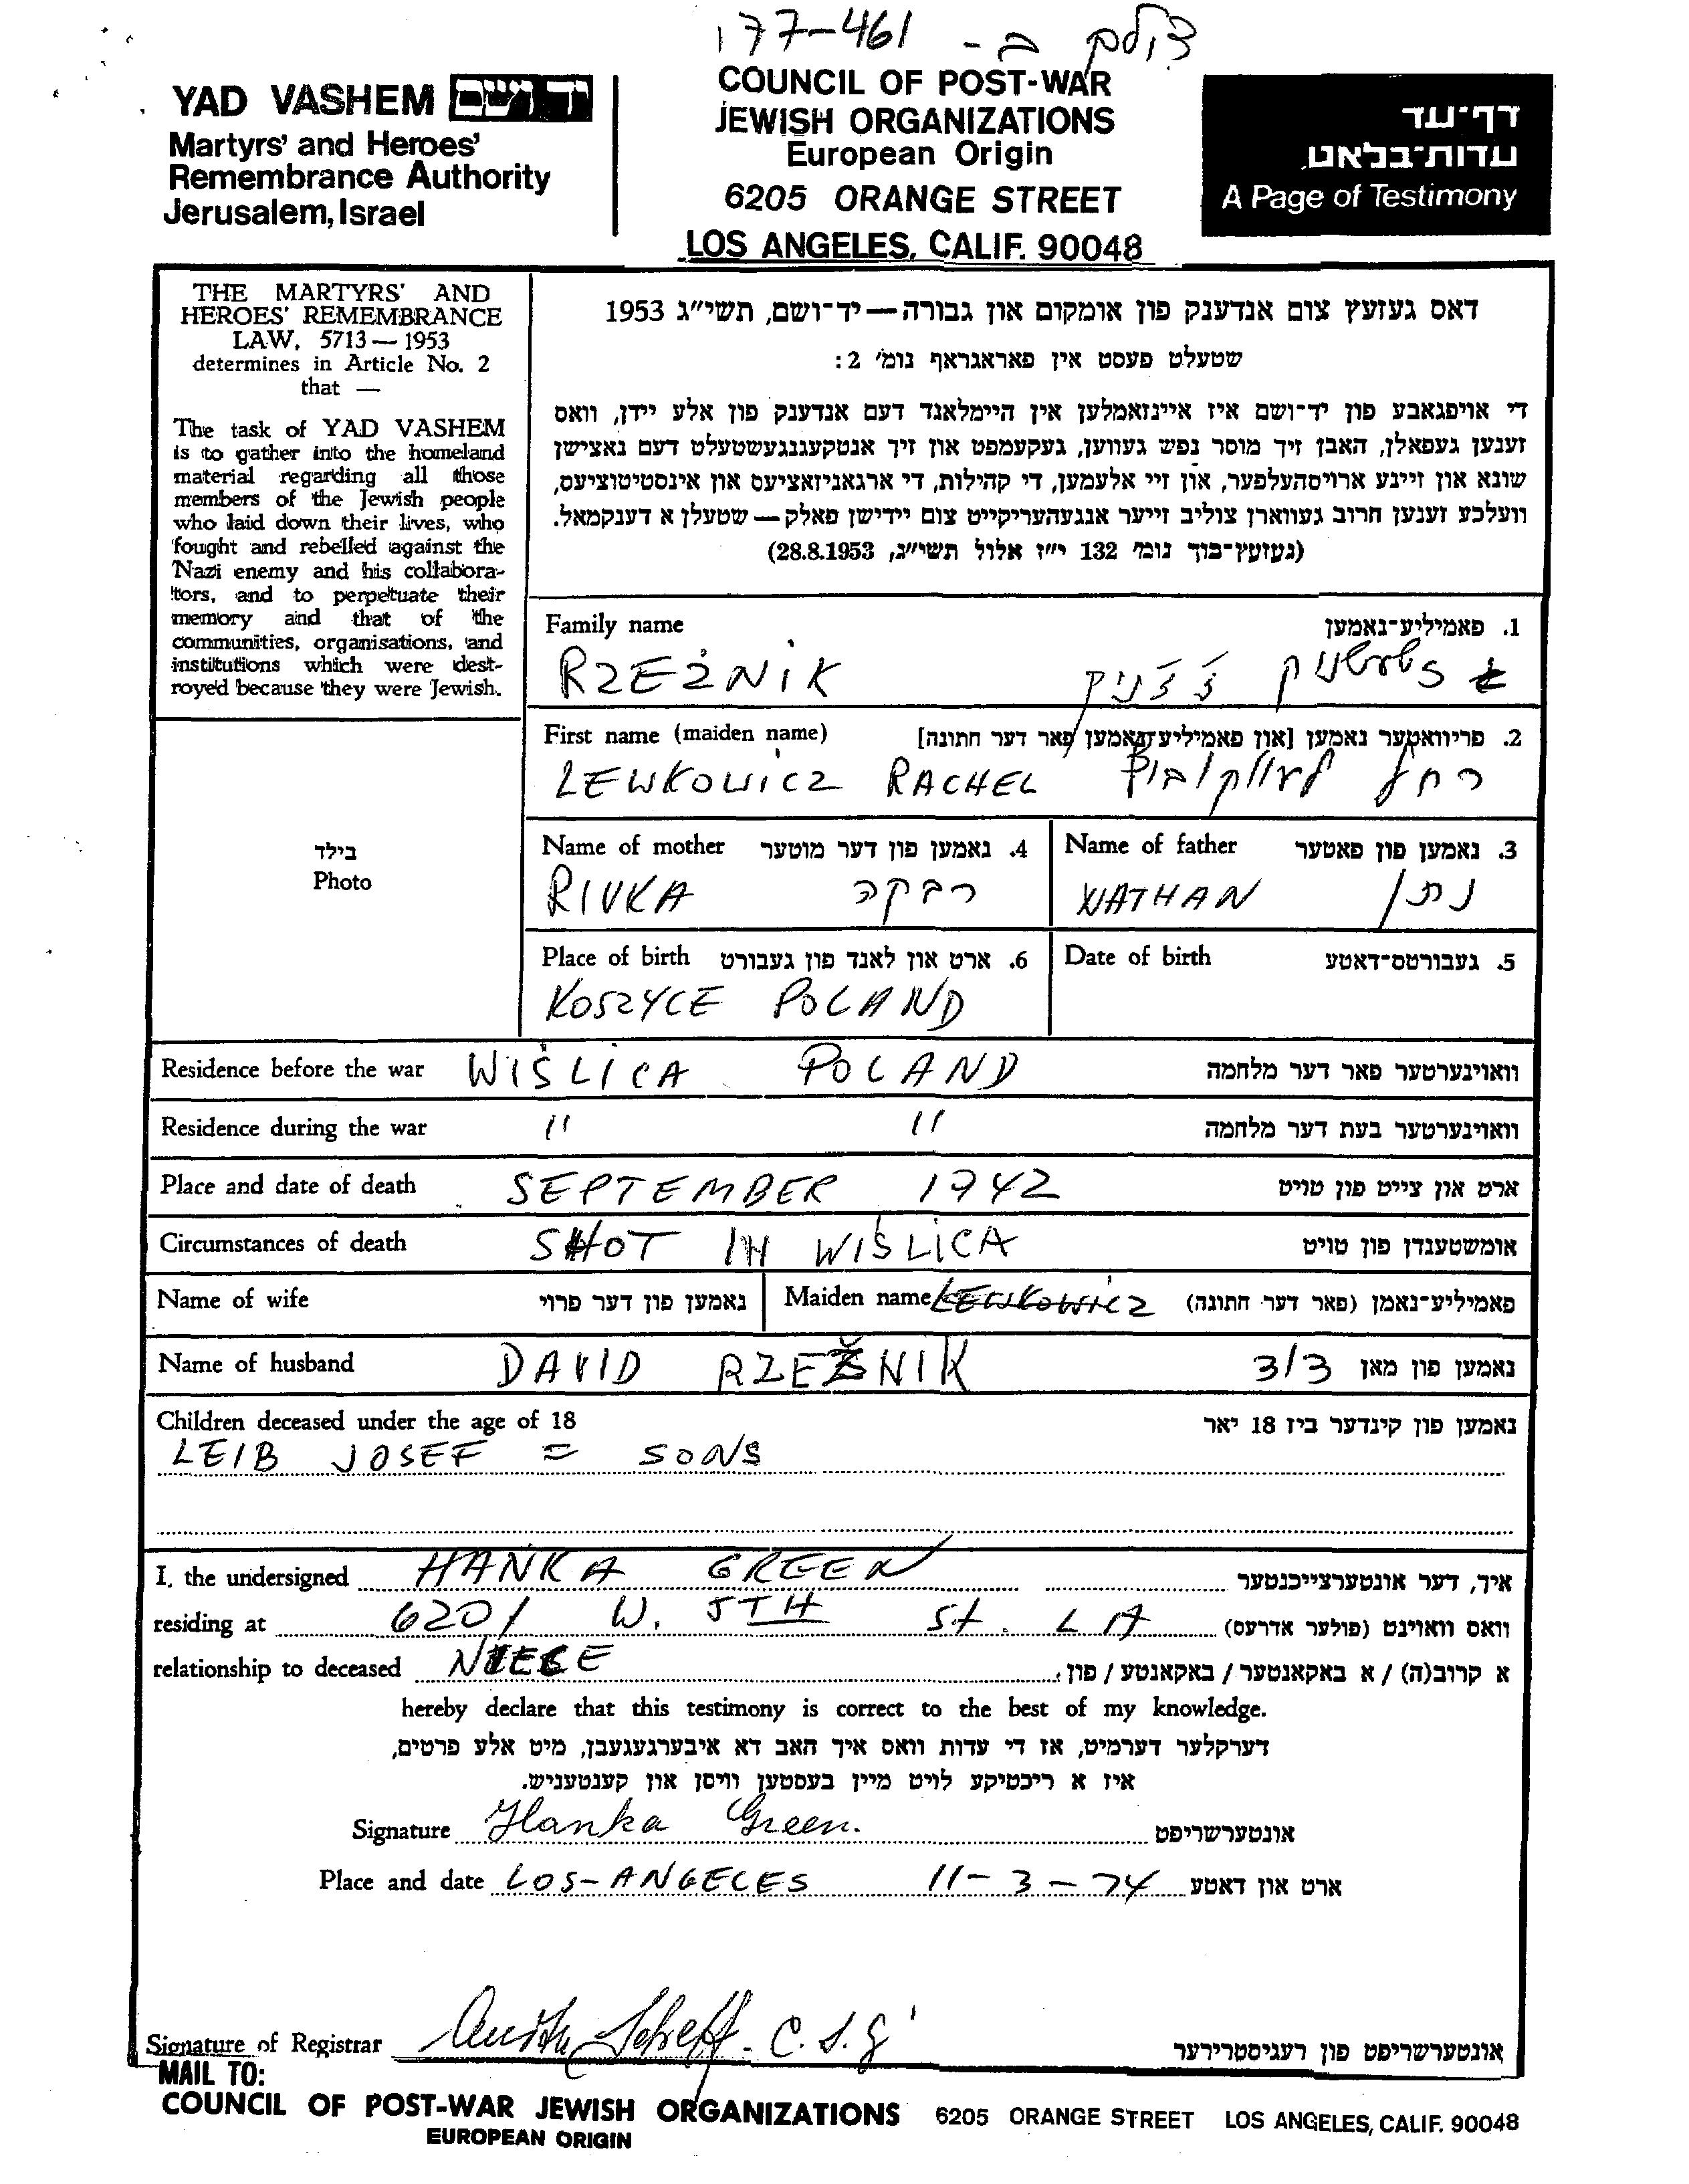 177-461 - ב צולם
YAD VASHEM יד ושם
Martyrs' and Heroes'
Remembrance Authority
Jerusalem, Israel
COUNCIL OF POST-WAR
JEWISH ORGANIZATIONS
European Origin
6205 ORANGE STREET
LOS ANGELES, CALIF. 90048
דף-עד
עדות-בלאט
A Page of Testimony
THE MARTYRS' AND
HEROES' REMEMBRANCE
LAW, 5713 — 1953
determines in Article No. 2
that —
The task of YAD VASHEM
is to gather into the homeland
material regarding all those
members of the Jewish people
who laid down their lives, who
fought and rebelled against the
Nazi enemy and his collabora-
tors, and to perpetuate their
memory and that of the
communities, organisations, and
institutions which were dest-
royed because they were Jewish.
דאס געזעץ צום אנדענק פון אומקום און גבורה — יד-ושם, תשי״ג 1953
שטעלט פעסט אין פאראגראף נומ׳ 2:
די אויפגאבע פון יד-ושם איז איינזאמלען אין היימלאנד דעם אנדענק פון אלע יידן, וואס
זענען געפאלן, האבן זיך מוסר נפש געווען, געקעמפט און זיך אנטקעגנגעשטעלט דעם נאצישן
שונא און זיינע ארויסהעלפער, און זיי אלעמען, די קהילות, די ארגאניזאציעס און אינסטיטוציעס,
וועלכע זענען חרוב געווארן צוליב זייער אנגעהעריקייט צום יידישן פאלק — שטעלן א דענקמאל.
(געזעץ-בוך נומ׳ 132 י״ז אלול תשי״ג, 28.8.1953)
Family name 1. פאמיליע-נאמען
RZEŻNIK
First name (maiden name) 2. פריוואטער נאמען [און פאמיליע-נאמען פאר דער חתונה]
LEWKOWICZ RACHEL רחל לעווקוביץ
Name of mother 4. נאמען פון דער מוטער
RIVKA רבקה
Name of father 3. נאמען פון פאטער
NATHAN נתן
Place of birth 6. ארט און לאנד פון געבורט
KOSZYCE POLAND
Date of birth 5. געבורטס-דאטע
בילד
Photo
Residence before the war WIŚLICA POLAND וואוינערטער פאר דער מלחמה
Residence during the war " " וואוינערטער בעת דער מלחמה
Place and date of death SEPTEMBER 1942 ארט און צייט פון טויט
Circumstances of death SHOT IN WIŚLICA אומשטענדן פון טויט
Name of wife נאמען פון דער פרוי Maiden name LEWKOWICZ פאמיליע-נאמן (פאר דער חתונה)
Name of husband DAVID RZEŻNIK דוד נאמען פון מאן
Children deceased under the age of 18 נאמען פון קינדער ביז 18 יאר
LEIB JOSEF = SONS
I, the undersigned HANKA GREEN איך, דער אונטערצייכנטער
residing at 6201 W. 5TH St. LA וואס וואוינט (פולער אדרעס)
relationship to deceased NIECE א קרוב(ה) / א באקאנטער / באקאנטע / פון
hereby declare that this testimony is correct to the best of my knowledge.
דערקלער דערמיט, אז די עדות וואס איך האב דא איבערגעגעבן, מיט אלע פרטים,
איז א ריכטיקע לויט מיין בעסטען וויסן און קענטעניש.
Signature Hanka Green. אונטערשריפט
Place and date LOS-ANGELES 11-3-74 ארט און דאטע
Signature of Registrar אונטערשריפט פון רעגיסטרירער
MAIL TO:
COUNCIL OF POST-WAR JEWISH ORGANIZATIONS 6205 ORANGE STREET LOS ANGELES, CALIF. 90048
EUROPEAN ORIGIN